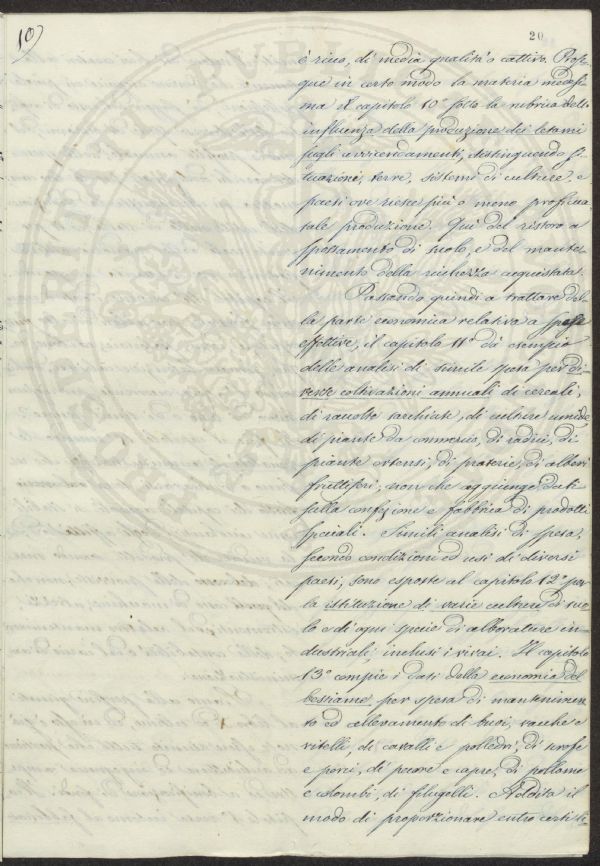 10)
20
è ricco, di media qualità o cattivo. Prose-
gue in certo modo la materia medesi-
ma il capitolo 10° sotto la rubrica dell'
influenza della produzione dei letami
sugli avvicendamenti, distinguendo si-
tuazioni, terre, sistemi di culture, e
paesi ove riesce più o meno proficua
tale produzione. Qui del ristoro a
spossamento di suolo, e del mante-
nimento della ricchezza acquistata.
Passando quindi a trattare del-
la parte economica relativa a spese
effettive, il capitolo 11° dà esempio
delle analisi di simile spesa per di-
verse coltivazioni annuali di cereali,
di raccolte sarchiate, di culture umide
di piante da commercio, di radici, di
piante ortensi, di praterie, di alberi
fruttiferi, non che aggiunge dati
sulla confezione e fabbrica di prodotti
speciali. Simili analisi di spesa,
secondo condizioni ed usi di diversi
paesi, sono esposte al capitolo 12° per
la istituzione di varie culture di suo-
lo e di ogni specie di alborature in-
dustriali, inclusi i vivai. Il capitolo
13° compie i dati della economia del
bestiame per spesa di mantenimen-
to ed allevamento di buoi, vacche e
vitelli, di cavalli e polledri, di scrofe
e porci, di pecore e capre, di pollame
e colombi, di filugelli. Addita il
modo di proporzionare entro certi li-